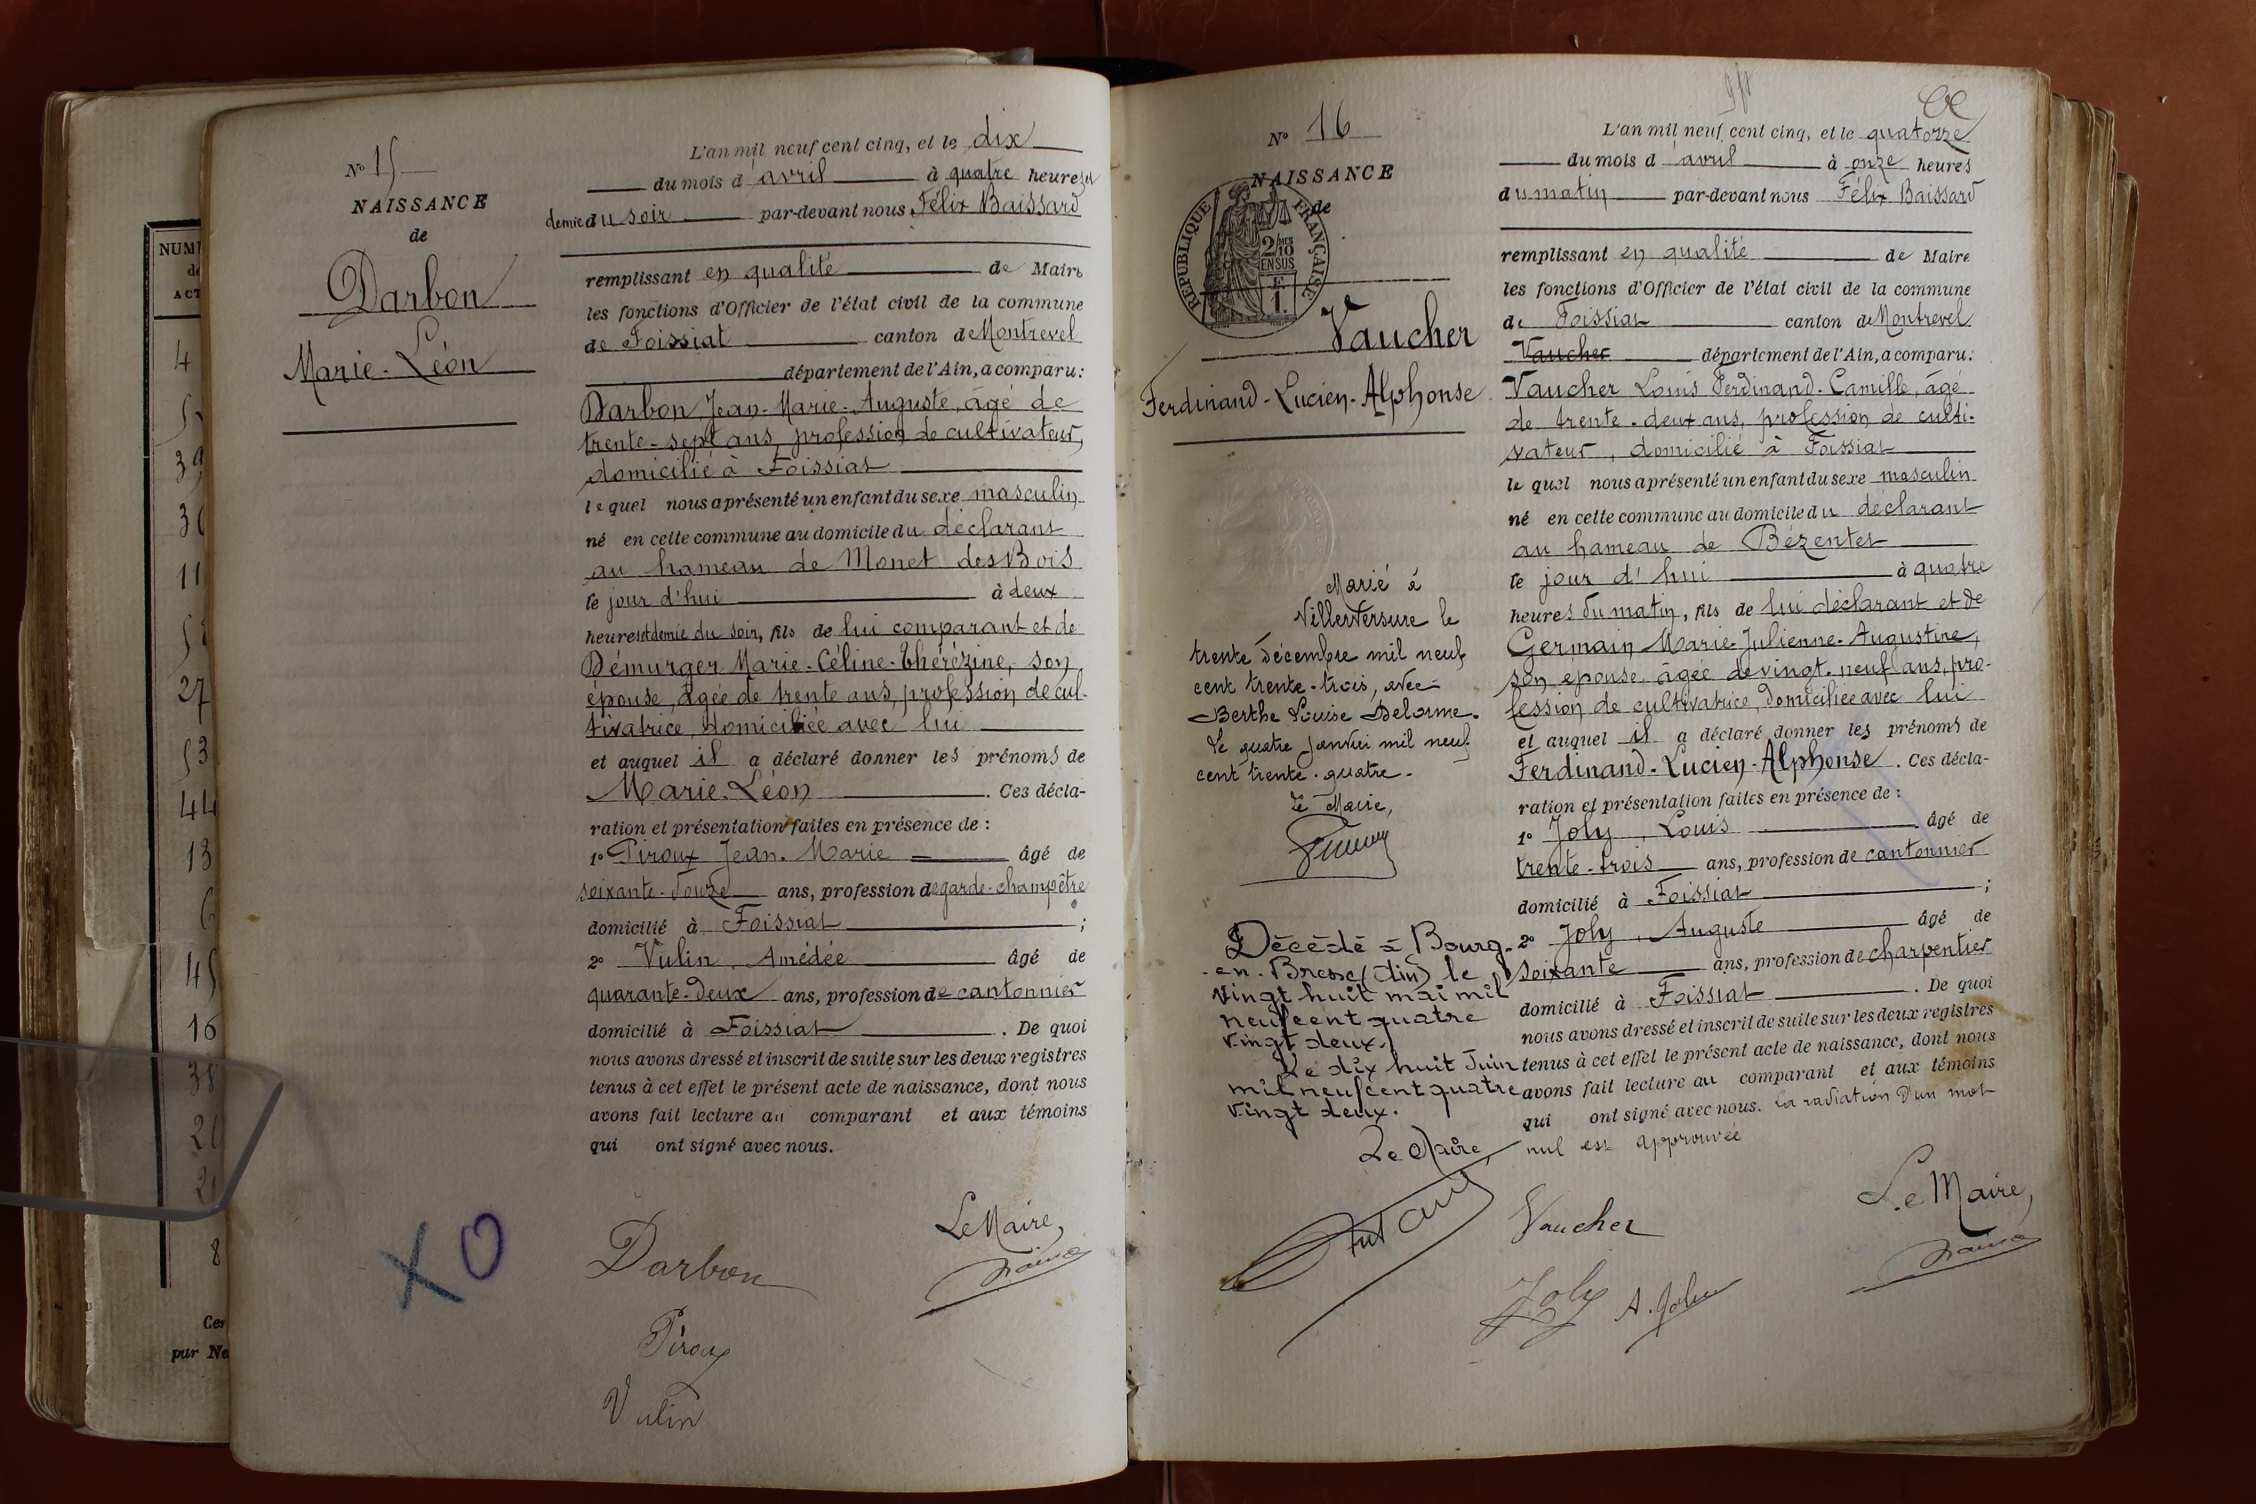 NUM
de
ACT
4
39
11
27
53
44
13
6
45
16
38
20
8
Cer
par Ne
N° 15
NAISSANCE
de
Darbon
Marie-Léon
L'an mil neuf cent cinq, et le dix
du mois d'avril à quatre heures et
demie du soir par-devant nous Félix Baissard
remplissant en qualité de Maire
les fonctions d'Officier de l'état civil de la commune
de Foissiat canton de Montrevel
département de l'Ain, a comparu:
Darbon Jean-Marie-Auguste, âgé de
trente-sept ans, profession de cultivateur,
domicilié à Foissiat
lequel nous a présenté un enfant du sexe masculin
né en cette commune au domicile du déclarant
au hameau de Monet des Bois
le jour d'hui à deux
heures et demie du soir, fils de lui comparant et de
Démurger Marie-Céline-Thérézine, son
épouse, âgée de trente ans, profession de cul-
tivatrice, domiciliée avec lui
et auquel il a déclaré donner les prénoms de
Marie-Léon . Ces décla-
ration et présentation faites en présence de :
1° Piroux Jean-Marie âgé de
soixante-douze ans, profession de garde-champêtre
domicilié à Foissiat ;
2° Vulin, Amédée âgé de
quarante-deux ans, profession de cantonnier
domicilié à Foissiat . De quoi
nous avons dressé et inscrit de suite sur les deux registres
tenus à cet effet le présent acte de naissance, dont nous
avons fait lecture au comparant et aux témoins
qui ont signé avec nous.
Le Maire,
Darbon
Piroux
Vulin
X O
N° 16
NAISSANCE
de
RÉPUBLIQUE FRANÇAISE
2/10MES
EN SUS
F
1.
Vaucher
Ferdinand-Lucien-Alphonse
Marié à
Villereversure le
trente décembre mil neuf
cent trente-trois, avec
Berthe Louise Delorme.
Le quatre janvier mil neuf
cent trente-quatre.
Le Maire,
Décédé à Bourg-
-en-Bresse (Ain) le
vingt huit mai mil
neuf cent quatre
vingt deux.
Le dix huit Juin
mil neuf cent quatre
vingt deux.
Le Maire,
L'an mil neuf cent cinq, et le quatorze
du mois d'avril à onze heures
du matin par-devant nous Félix Baissard
remplissant en qualité de Maire
les fonctions d'Officier de l'état civil de la commune
de Foissiat canton de Montrevel
Vaucher département de l'Ain, a comparu:
Vaucher Louis Ferdinand-Camille, âgé
de trente-deux ans, profession de culti-
vateur, domicilié à Foissiat
lequel nous a présenté un enfant du sexe masculin
né en cette commune au domicile du déclarant
au hameau de Bézentet
le jour d'hui à quatre
heures du matin, fils de lui déclarant et de
Germain Marie-Julienne-Augustine,
son épouse, âgée de vingt-neuf ans, pro-
fession de cultivatrice, domiciliée avec lui
et auquel il a déclaré donner les prénoms de
Ferdinand-Lucien-Alphonse . Ces décla-
ration et présentation faites en présence de :
1° Joly, Louis âgé de
trente-trois ans, profession de cantonnier
domicilié à Foissiat ;
2° Joly, Auguste âgé de
soixante ans, profession de charpentier
domicilié à Foissiat . De quoi
nous avons dressé et inscrit de suite sur les deux registres
tenus à cet effet le présent acte de naissance, dont nous
avons fait lecture au comparant et aux témoins
qui ont signé avec nous. La radiation d'un mot
nul est approuvée
Le Maire,
Vaucher
Joly A. Joly